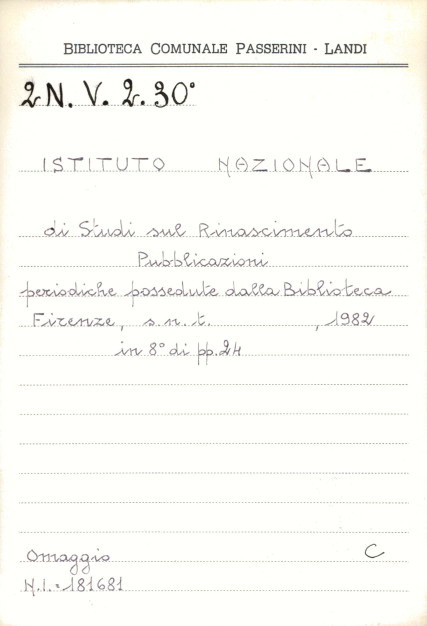 BIBLIOTECA COMUNALE PASSERINI - LANDI
2N. V. 2. 30°
ISTITUTO NAZIONALE
di Studi sul Rinascimento
Pubblicazioni
periodiche possedute dalla Biblioteca
Firenze, s.n.t. , 1982
in 8° di pp. 24
Omaggio C
N.I.=181681